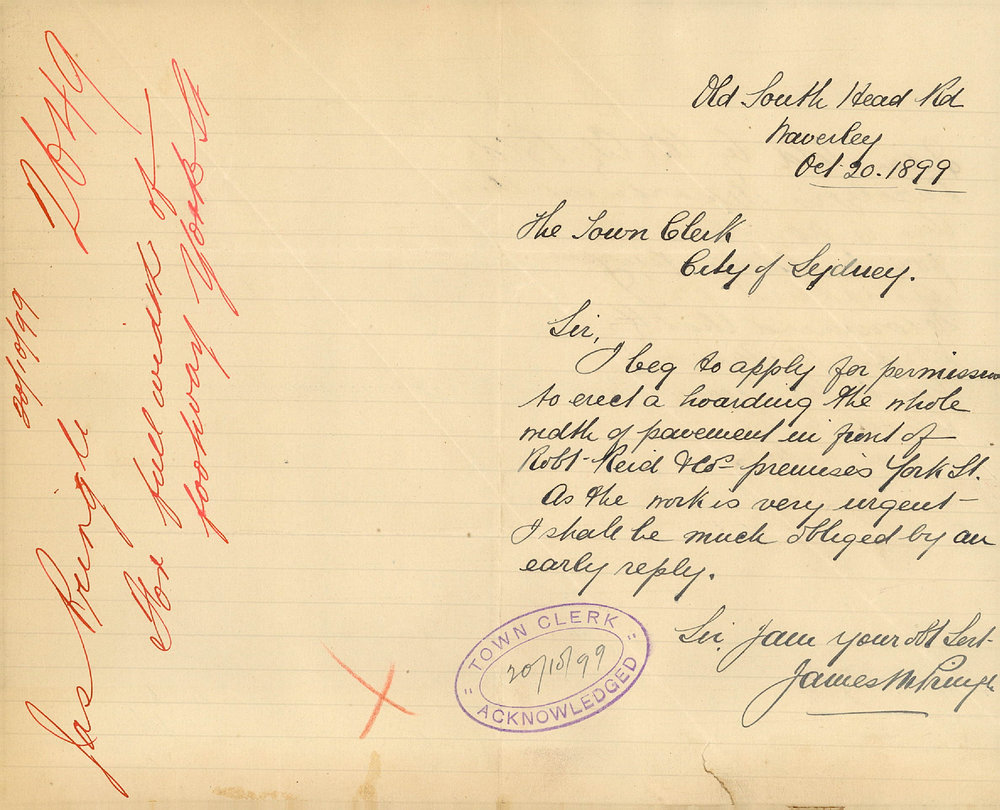 Jas Pringle 20/10/99 2649
For full width of
footway York St
Old South Head Rd
Waverley
Oct. 20. 1899
The Town Clerk
City of Sydney.
Sir,
I beg to apply for permission
to erect a hoarding the whole
width of pavement in front of
Robt Reid & Co premises York St.
As the work is very urgent
I shall be much obliged by an
early reply.
Sir, I am your obt Sert
James M Pringle
TOWN CLERK
20/10/99
ACKNOWLEDGED